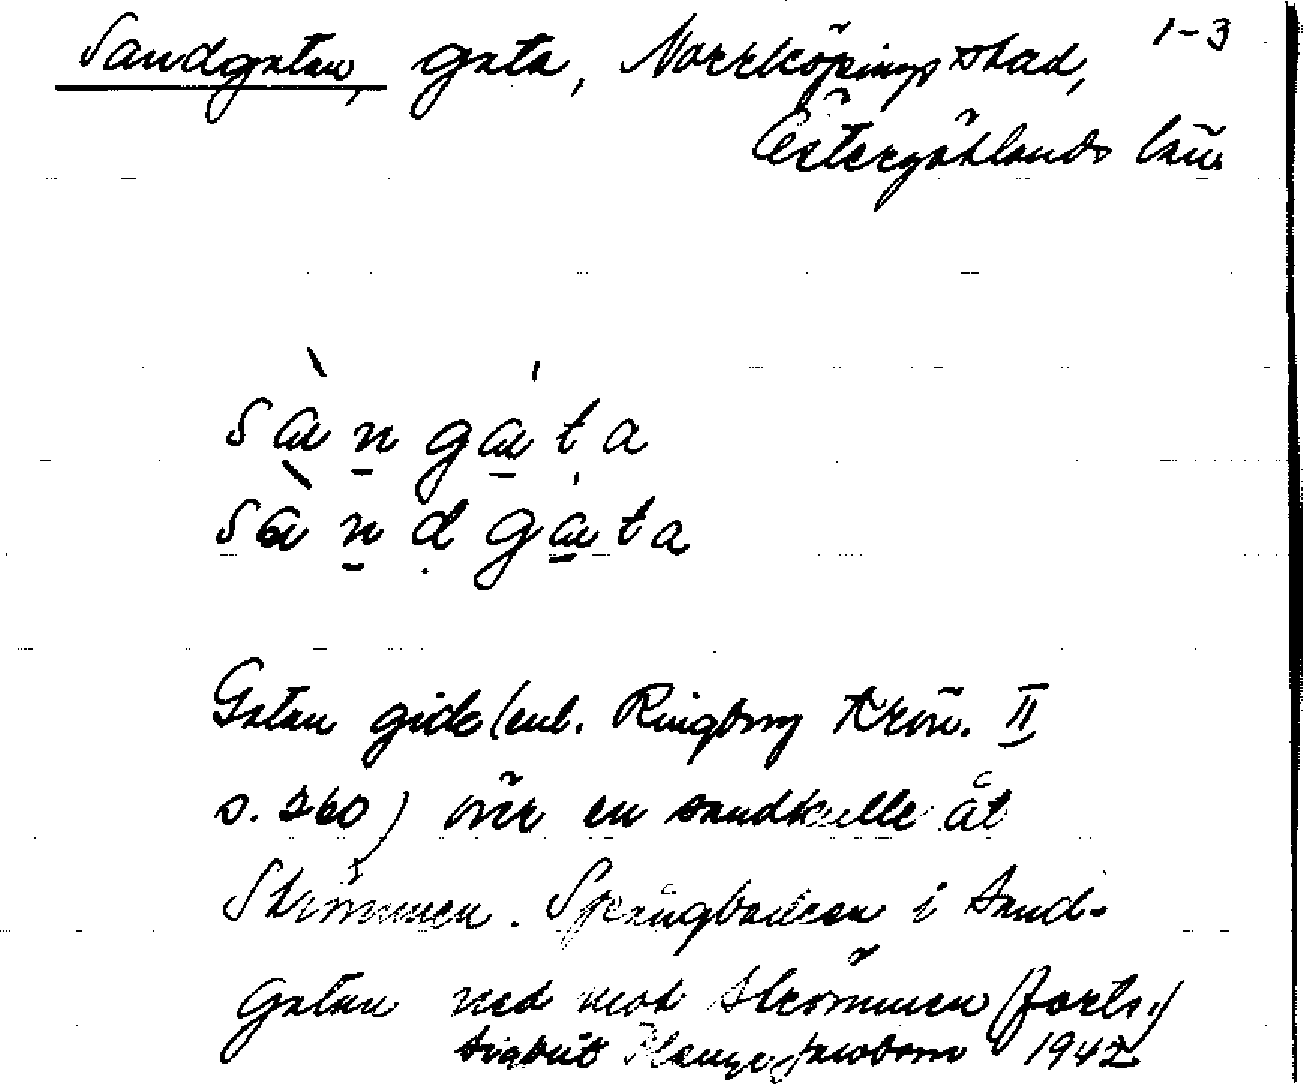 Sandgatan, gata, Norrköpings stad, 1-3
Östergötlands län
sàngáta
sàndgáta
Gatan gick (enl. Ringborg Krön. II
s. 260) över en sandkulle åt
Strömmen. Språngbacken i Sand-
gatan ned mot Strömmen (forts.)
Sigbrit Jacobson 1942